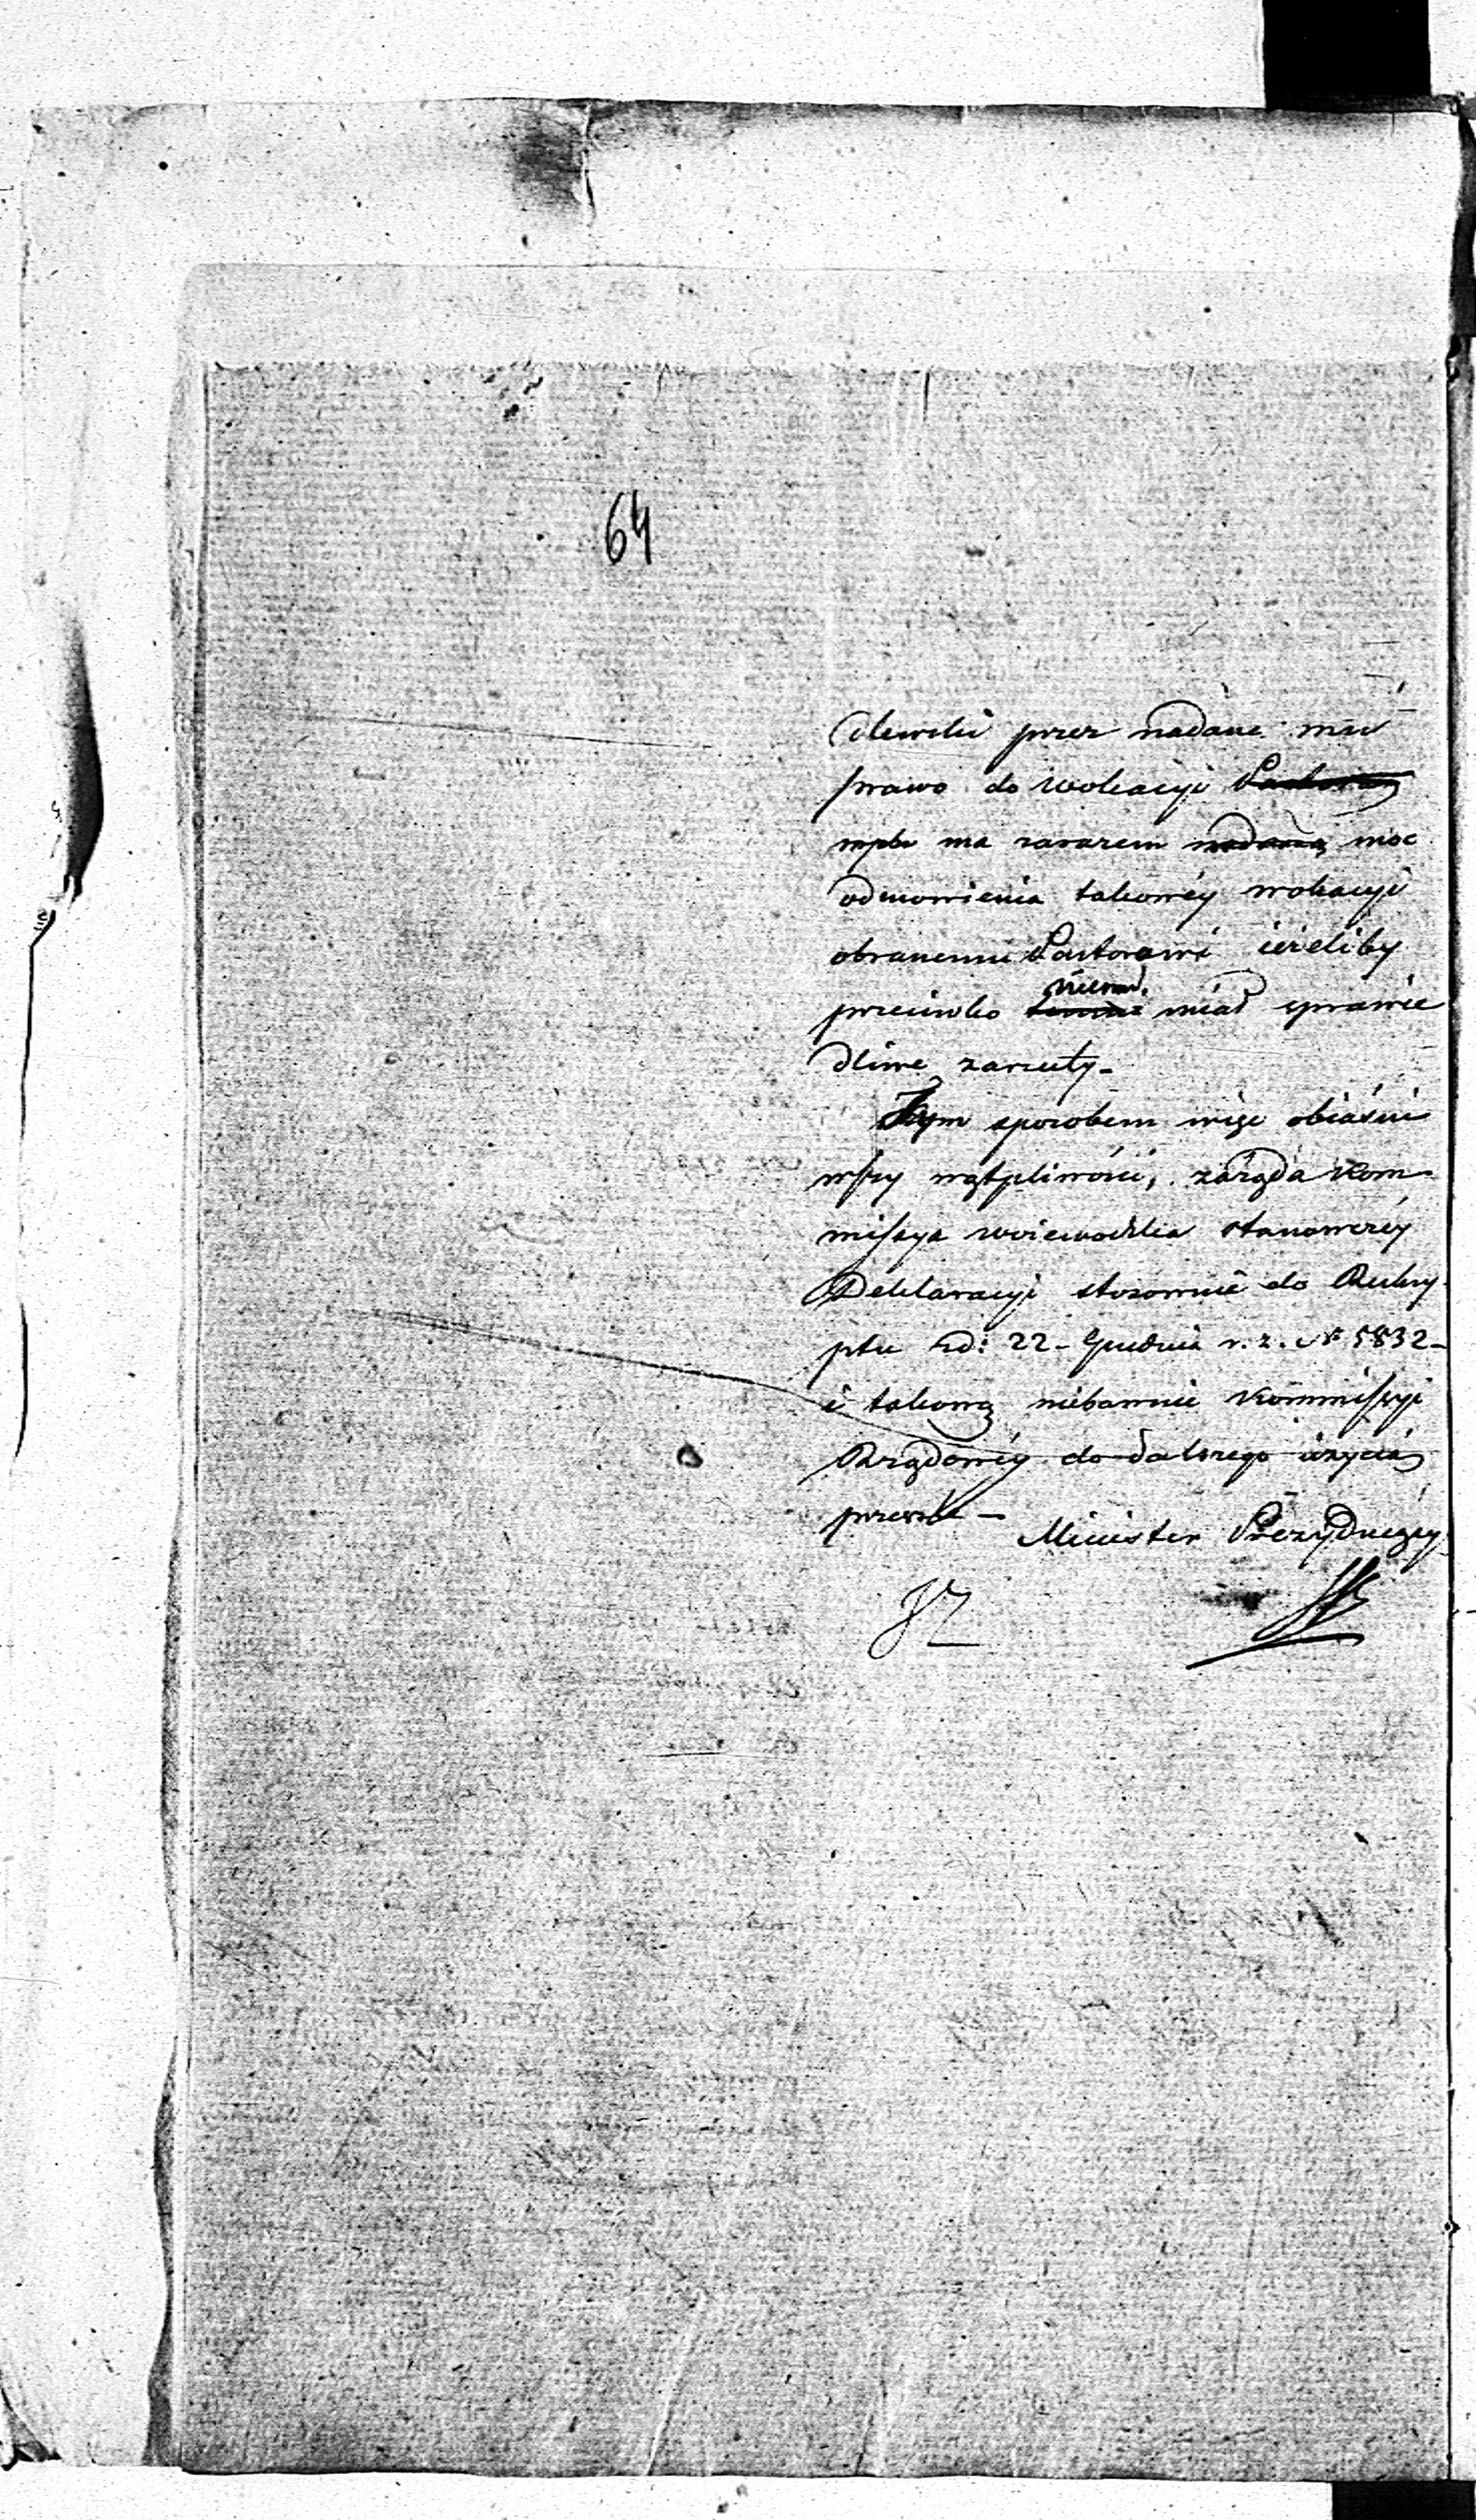 64
dlewski przez nadane mu
prawo do wokacyi Pastora
mpbu ma zarazem nadaną moc
odmowienia takowéy wokacyi
obranemu Pastorowi ieżeliby
przeciwko niemu miał sprawie
dliwe zarzuty_
Tym sposobem więc obiaśni
wszy wątpliwości, zażąda Kom
missya woiewodzka stanowczéy
Deklaracyi stosownie do Reskry
ptu z d: 22_ Grudnia r. z. N° 5832_
i takową niebawnie Kommissyi
Rządowéy do dalszego użycia
przeszle_
Minister Prezyduiący